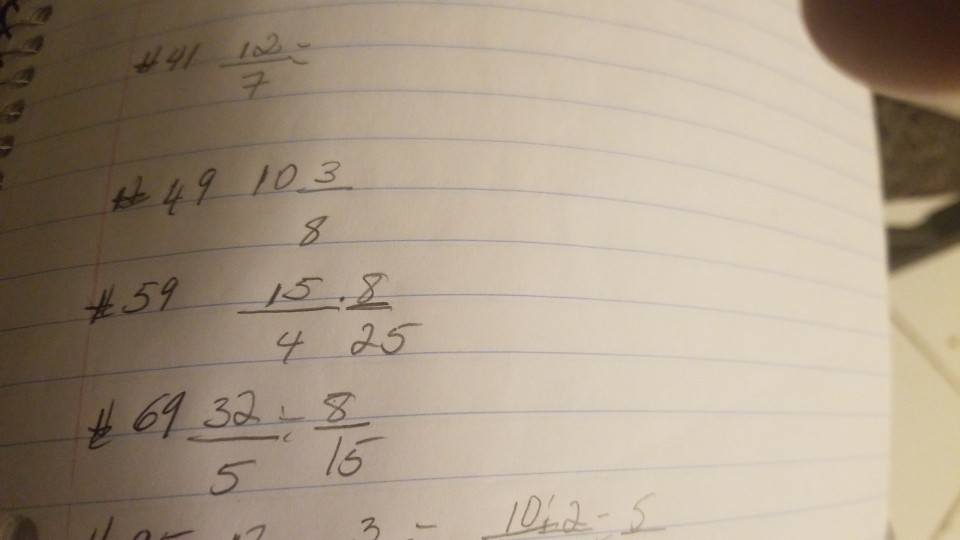 #41 12 =
7
#49 10 3
8
#59 15 . 8
4 25
#69 32 ÷ 8
5 15
3 = 10÷2 = 5